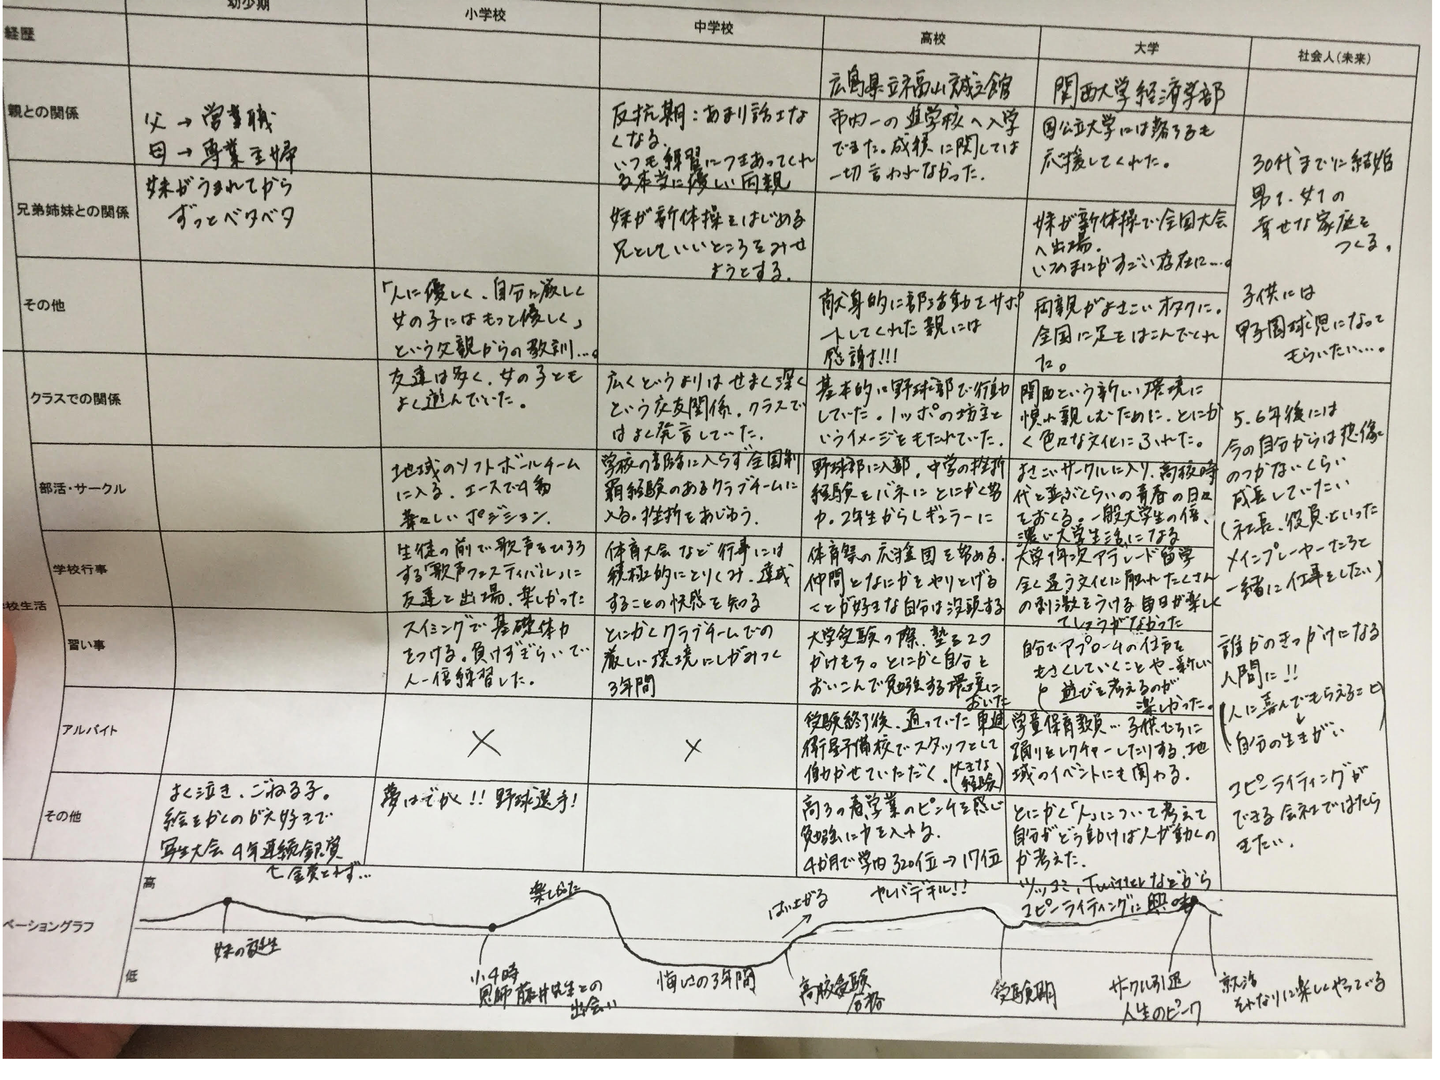 幼少期
小学校
中学校
高校
大学
社会人(未来)
経歴
広島県立福山誠之館
関西大学経済学部
親との関係
父→営業職
母→専業主婦
反抗期:あまり話さな
くなる
いつも練習につきあってくれ
る本当に優しい両親
市内一の進学校へ入学
できた。成績に関しては
一切言われなかった。
国公立大学には落ちるも
応援してくれた。
30代までに結婚
男1、女1の
幸せな家庭を
つくる。
子供には
甲子園球児になって
もらいたい…。
兄弟姉妹との関係
妹がうまれてから
ずっとベタベタ
妹が新体操をはじめる
兄としていいところをみせ
ようとする。
妹が新体操で全国大会
へ出場。
いつのまにかすごい存在に…。
その他
「人に優しく、自分に厳しく
女の子にはもって優しく」
という父親からの教訓…。
献身的に部活動をサポ
ートしてくれた親には
感謝!!!
両親がよさこいオタクに。
全国に足をはこんでくれ
た。
クラスでの関係
友達は多く、女の子とも
よく遊んでいた。
広くというよりはせまく深く
という交友関係。クラスで
はよく発言していた。
基本的に野球部で行動
していた。1ッポの坊主と
いうイメージをもたれていた。
関西という新しい環境に
慣れ親しむために、とにか
く色々な文化にふれた。
5、6年後には
今の自分からは想像
のつかないくらい
成長していたい
(社長、役員といった
メインプレーヤーたちと
一緒に仕事をしたい)
部活・サークル
地域のソフトボールチーム
に入る。エースで4番
華々しいポジション。
学校の部活に入らず全国制
覇経験のあるクラブチームに
入る。挫折をあじわう。
野球部に入部。中学の挫折
経験をバネにとにかく努
力。2年生からレギュラーに
よさこいサークルに入り、高校時
代と並ぶくらいの青春の日々
をおくる。一般大学生の倍、
濃い大学生活になる
学校生活
学校行事
生徒の前で歌声をひろう
する「歌声フェスティバル」に
友達と出場、楽しかった
体育大会など行事には
積極的にとりくみ、達成
することの快感を知る
体育祭の応援団を務める。
仲間となにかをやりとげる
ことが好きな自分は没頭する
大学1年次アデレード留学
全く違う文化に触れたくさん
の刺激をうける 毎日が楽しく
てしょうがなかった
習い事
スイミングで基礎体力
をつける。負けずぎらいで
人一倍練習した。
とにかくクラブチームでの
厳しい環境にしがみつく
3年間
大学受験の際、塾を2つ
かけもち。とにかく自分を
おいこんで勉強する環境に
おいた
自分でアプローチの仕方を
もさくしていくことや、新しい
遊びを考えるのが
楽しかった。
誰かのきっかけになる
人間に!!
(人に喜んでもらえること
↓
自分の生きがい)
コピーライティングが
できる会社ではたら
きたい。
アルバイト
×
×
受験終了後、通っていた東進
衛星予備校でスタッフとして
働かせていただく。(大きな
経験)
学童保育教員…子供たちに
踊りをレクチャーしたりする。地
域のイベントにも関わる。
その他
よく泣き、ごねる子。
絵をかくのが大好きで
写生大会 4年連続銀賞
金賞とれず…
夢はでかく!! 野球選手!
高3の春、学業のピンチを感じ
勉強に力を入れる。
4か月で学内320位→17位
ヤレバデキル!!
とにかく「人」について考えて
自分がどう動けば人が動くの
か考えた。
ツッコミ、Twitterなどから
コピーライティングに興味
ベーショングラフ
高
低
妹の誕生
小4時
恩師 藤井先生との
出会い
楽しかった
悔いの3年間
はい上がる
高校受験
合格
受験期
サークル引退
人生のピーク
就活
それなりに楽しくやっている